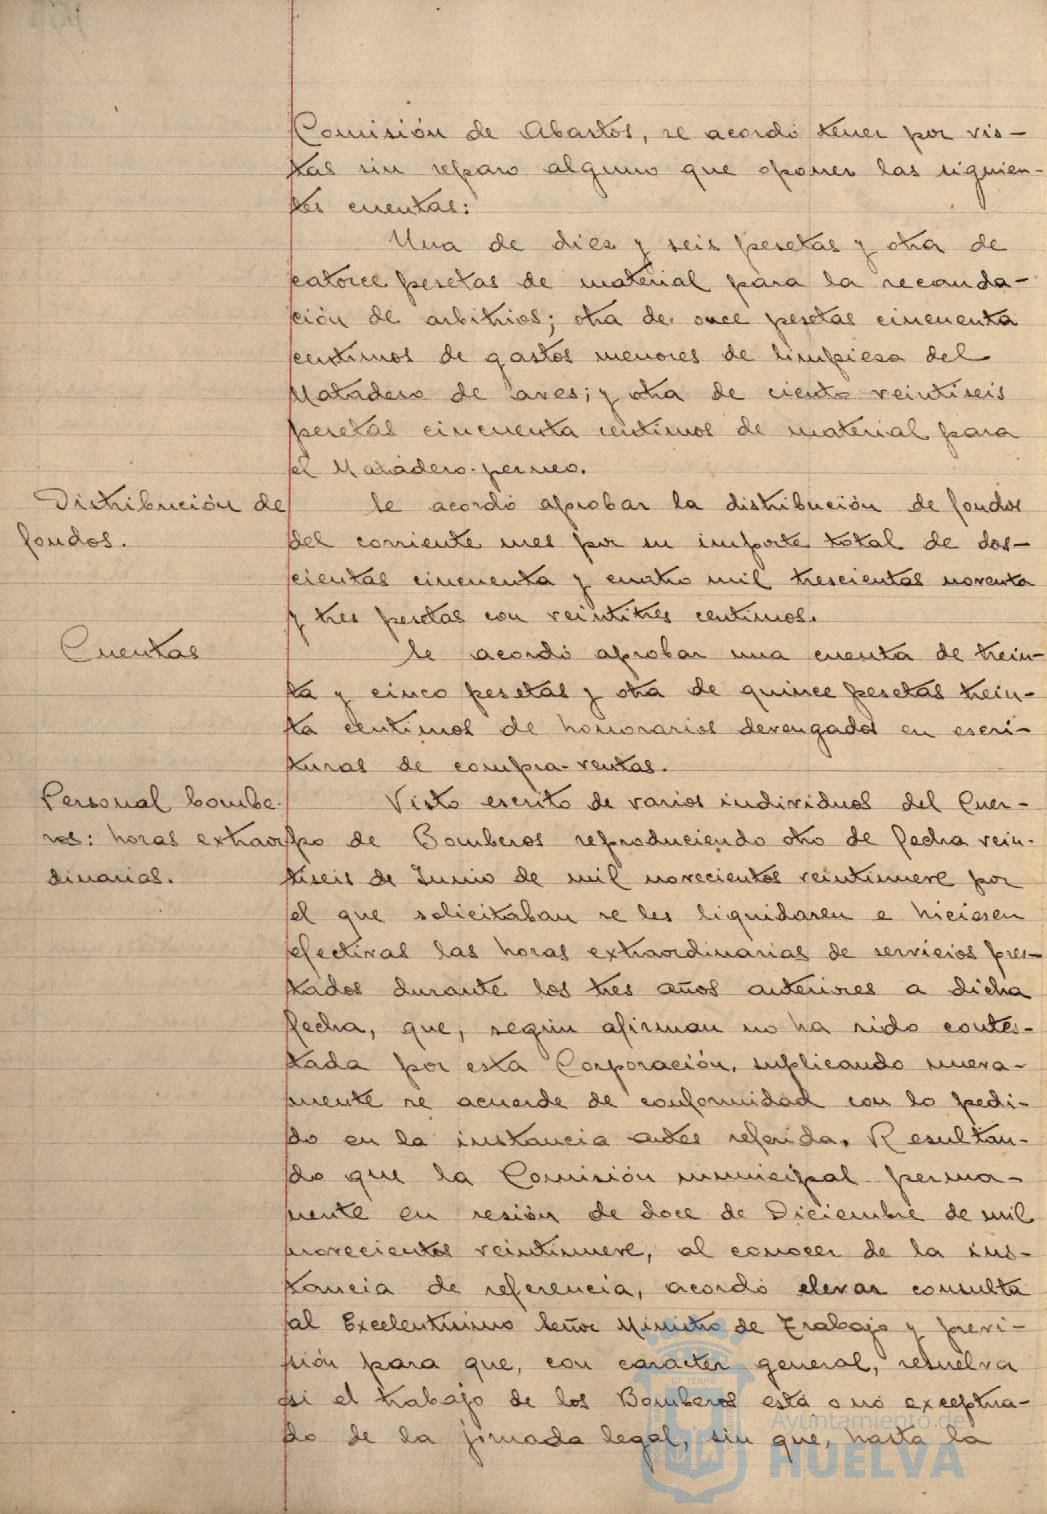 Comisión de Abastos, se acordó tener por vis-
tas sin reparo alguno que oponer las siguien-
tes cuentas:
Una de diez y seis pesetas y otra de
catorce pesetas de material para la recauda-
ción de arbitrios; otra de once pesetas cincuenta
centimos de gastos menores de limpieza del
Matadero de aves; y otra de ciento veintiseis
pesetas cincuenta centimos de material para
el Matadero-permeo.
Distribución de
fondos.
Se acordó aprobar la distribución de fondos
del corriente mes por su importe total de dos-
cientas cincuenta y cuatro mil trescientas noventa
y tres pesetas con veintitres centimos.
Cuentas
Se acordó aprobar una cuenta de trein-
ta y cinco pesetas y otra de quince pesetas trein-
ta centimos de honorarios devengados en escri-
turas de compra-ventas.
Personal bombe-
ros: horas extraor
dinarias.
Visto escrito de varios individuos del Cuer-
po de Bomberos reproduciendo otro de fecha vein-
tiseis de Junio de mil novecientos veintinueve por
el que solicitaban se les liquidasen e hiciesen
efectivas las horas extraordinarias de servicios pres-
tados durante los tres años anteriores a dicha
fecha, que, según afirman no ha sido contes-
tada por esta Corporación, suplicando nueva-
mente se acuerde de conformidad con lo pedi-
do en la instancia antes referida. Resultan-
do que la Comisión municipal perma-
nente en sesión de doce de Diciembre de mil
novecientos veintinueve, al conocer de la ins-
tancia de referencia, acordó elevar consulta
al Excelentisimo Señor Ministro de Trabajo y previ-
sión para que, con caracter general, resuelva
si el trabajo de los Bomberos está o nó exceptua-
do de la jornada legal, sin que, hasta la
Ayuntamiento de
HUELVA